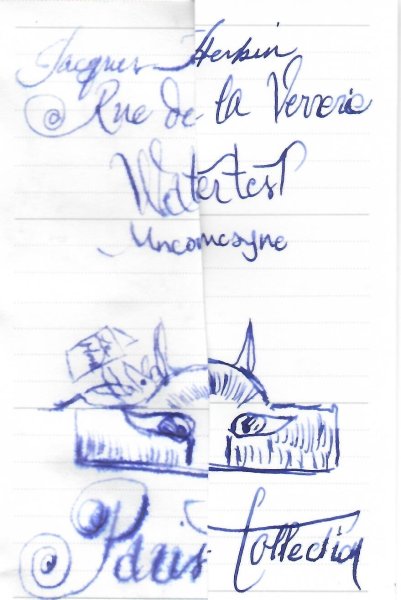 Jacques Herbin
Rue de la Verrerie
Watertest
Paris Collection